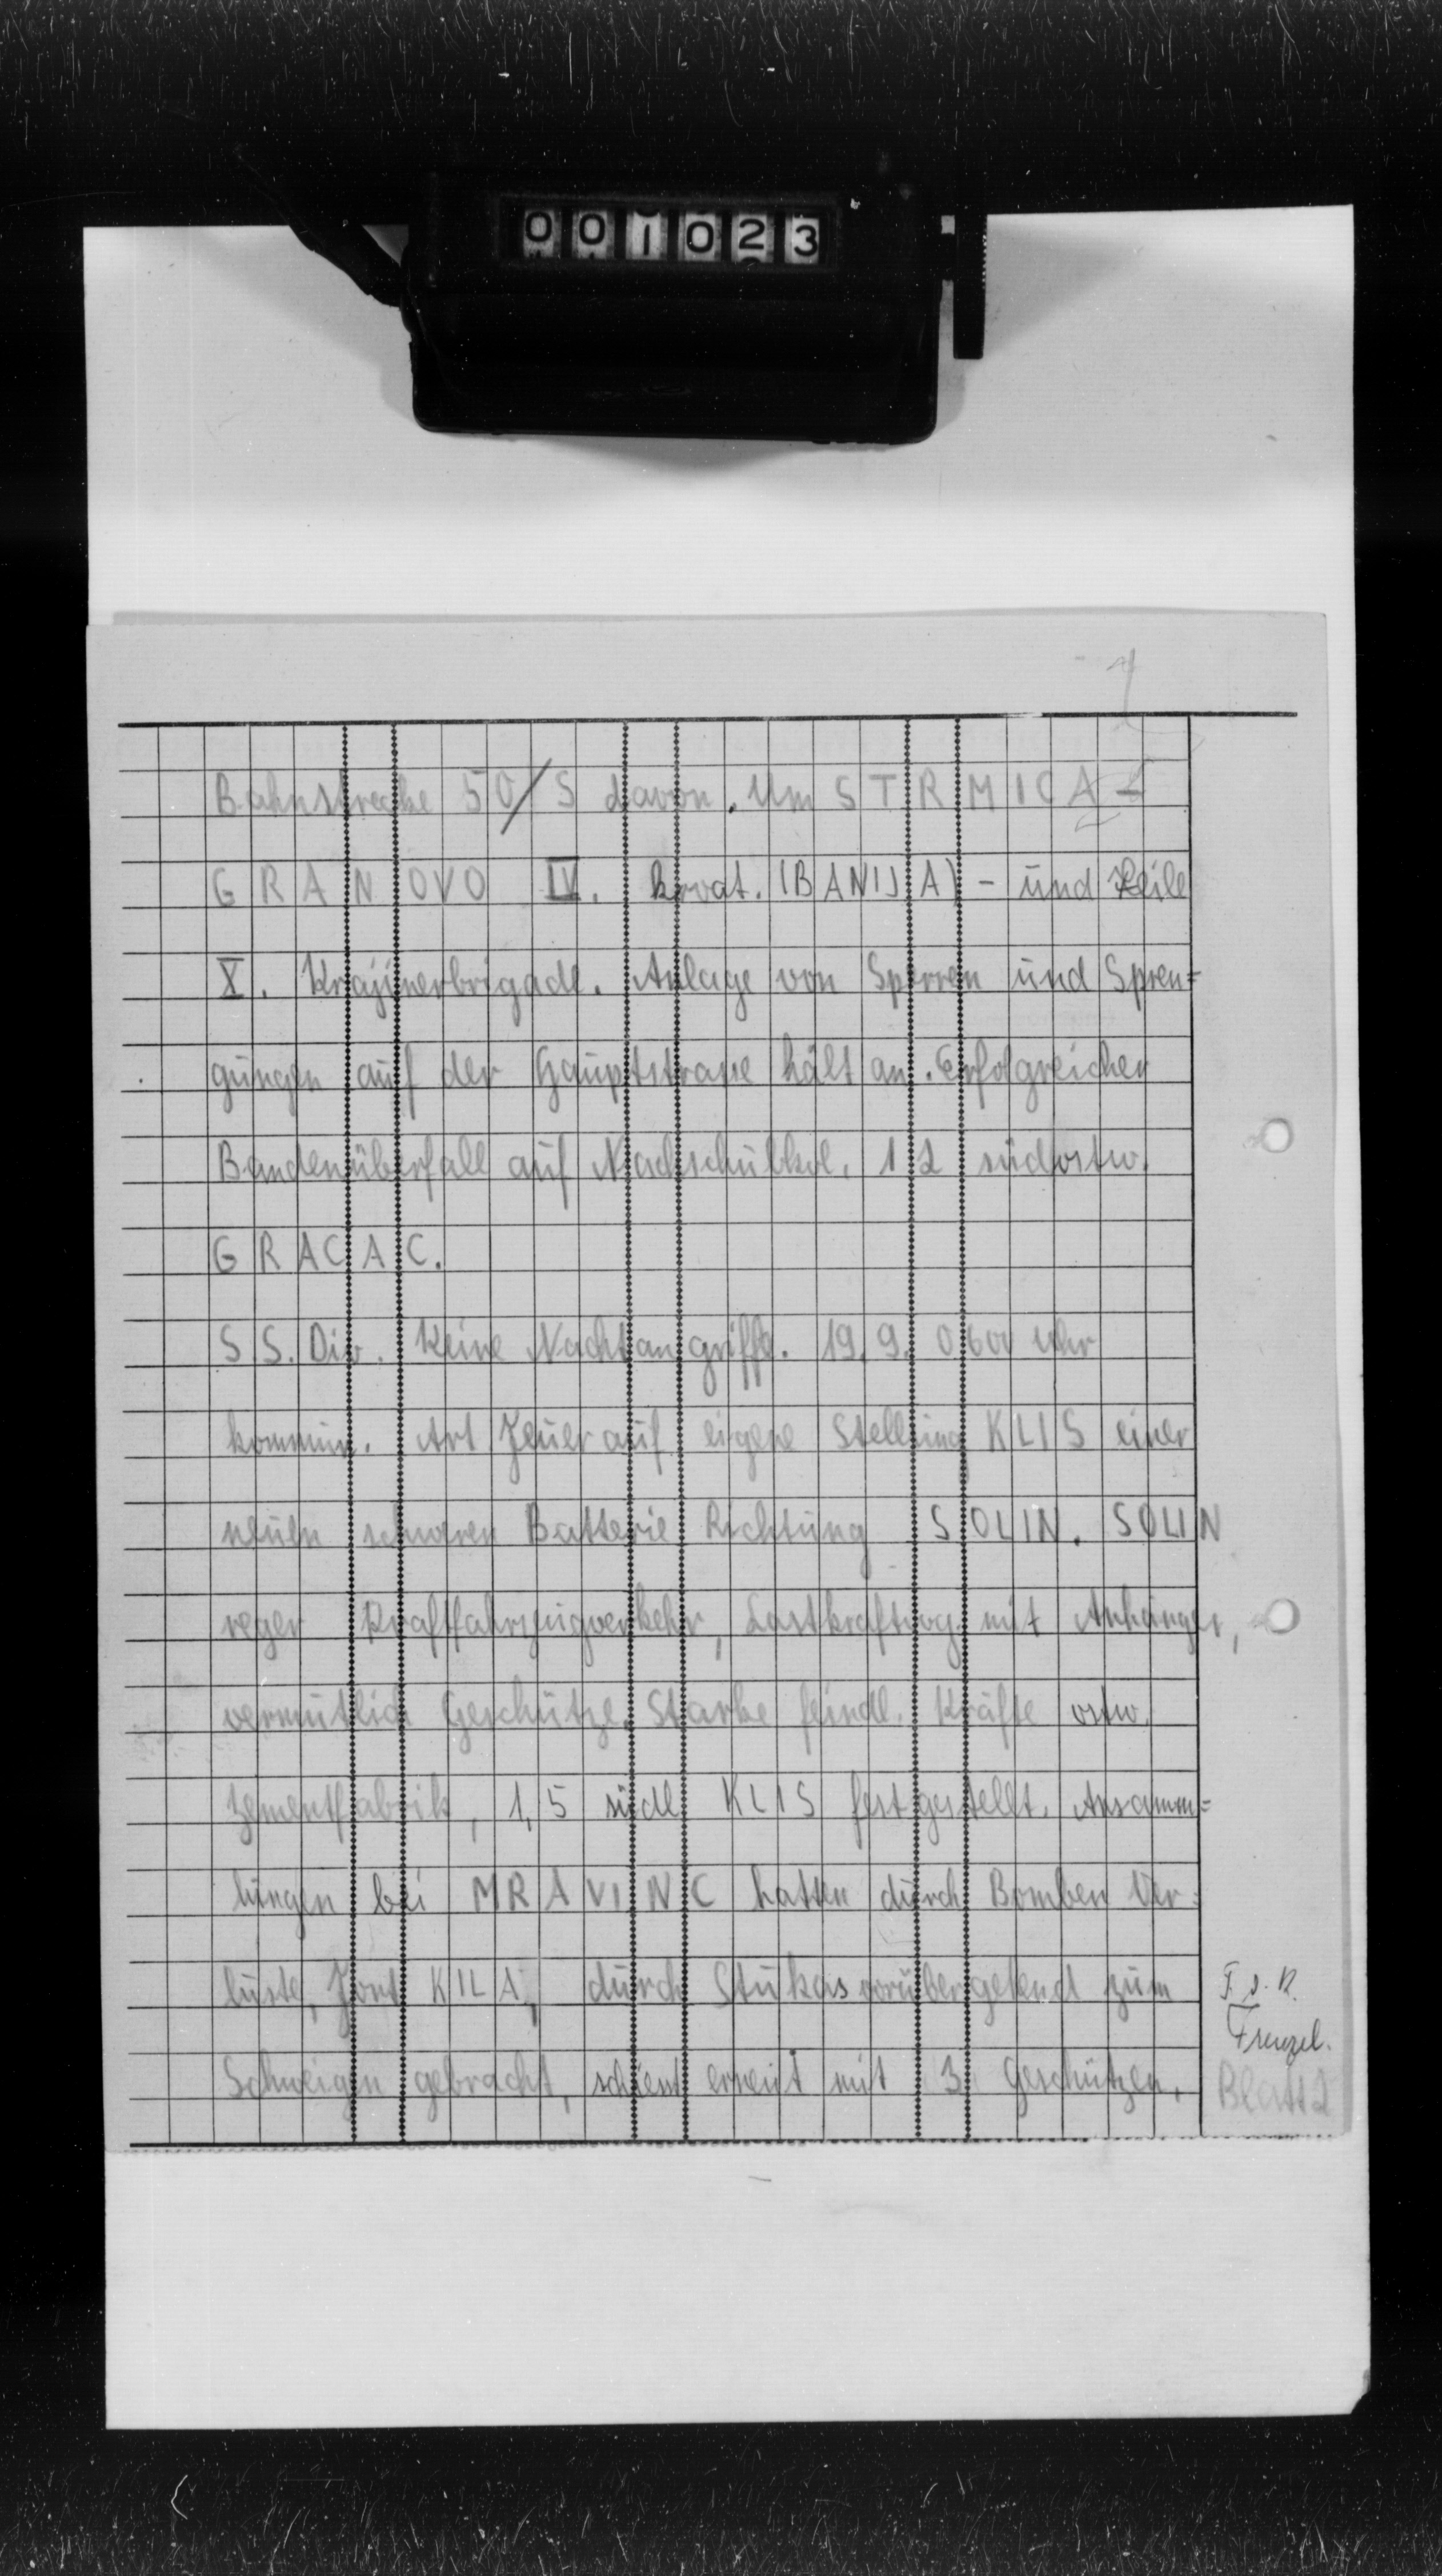 001023
Bahnstrecke 50/S davon. Um STRMICA -
GRANOVO IV. kroat. (BANIJA) - und Teile
X. Krajinerbrigade. Anlage von Sperren und Spren=
gungen auf der Hauptstrasse hält an. Erfolgreicher
Bandenüberfall auf Nachschubkol. 12 südostw.
GRACAC.
S.S. Div. Keine Nachtangriffe. 19.9. 0600 Uhr
kommun. Art Feuer auf eigene Stellung KLIS einer
neuen schweren Batterie Richtung SOLIN. SOLIN
reger Kraftfahrzeugverkehr, Lastkraftwg. mit Anhänger,
vermutlich Geschütze. Starke feindl. Kräfte ostw.
Zementfabrik, 1,5 südl. KLIS festgestellt. Ansamm=
lungen bei MRAVINC hatten durch Bomben Ver=
luste, Font KILA, durch Stukas vorübergehend zum
Schweigen gebracht, schiesst erneut mit 3 Geschützen.
F.d.R.
Frenzel.
Blatt 2